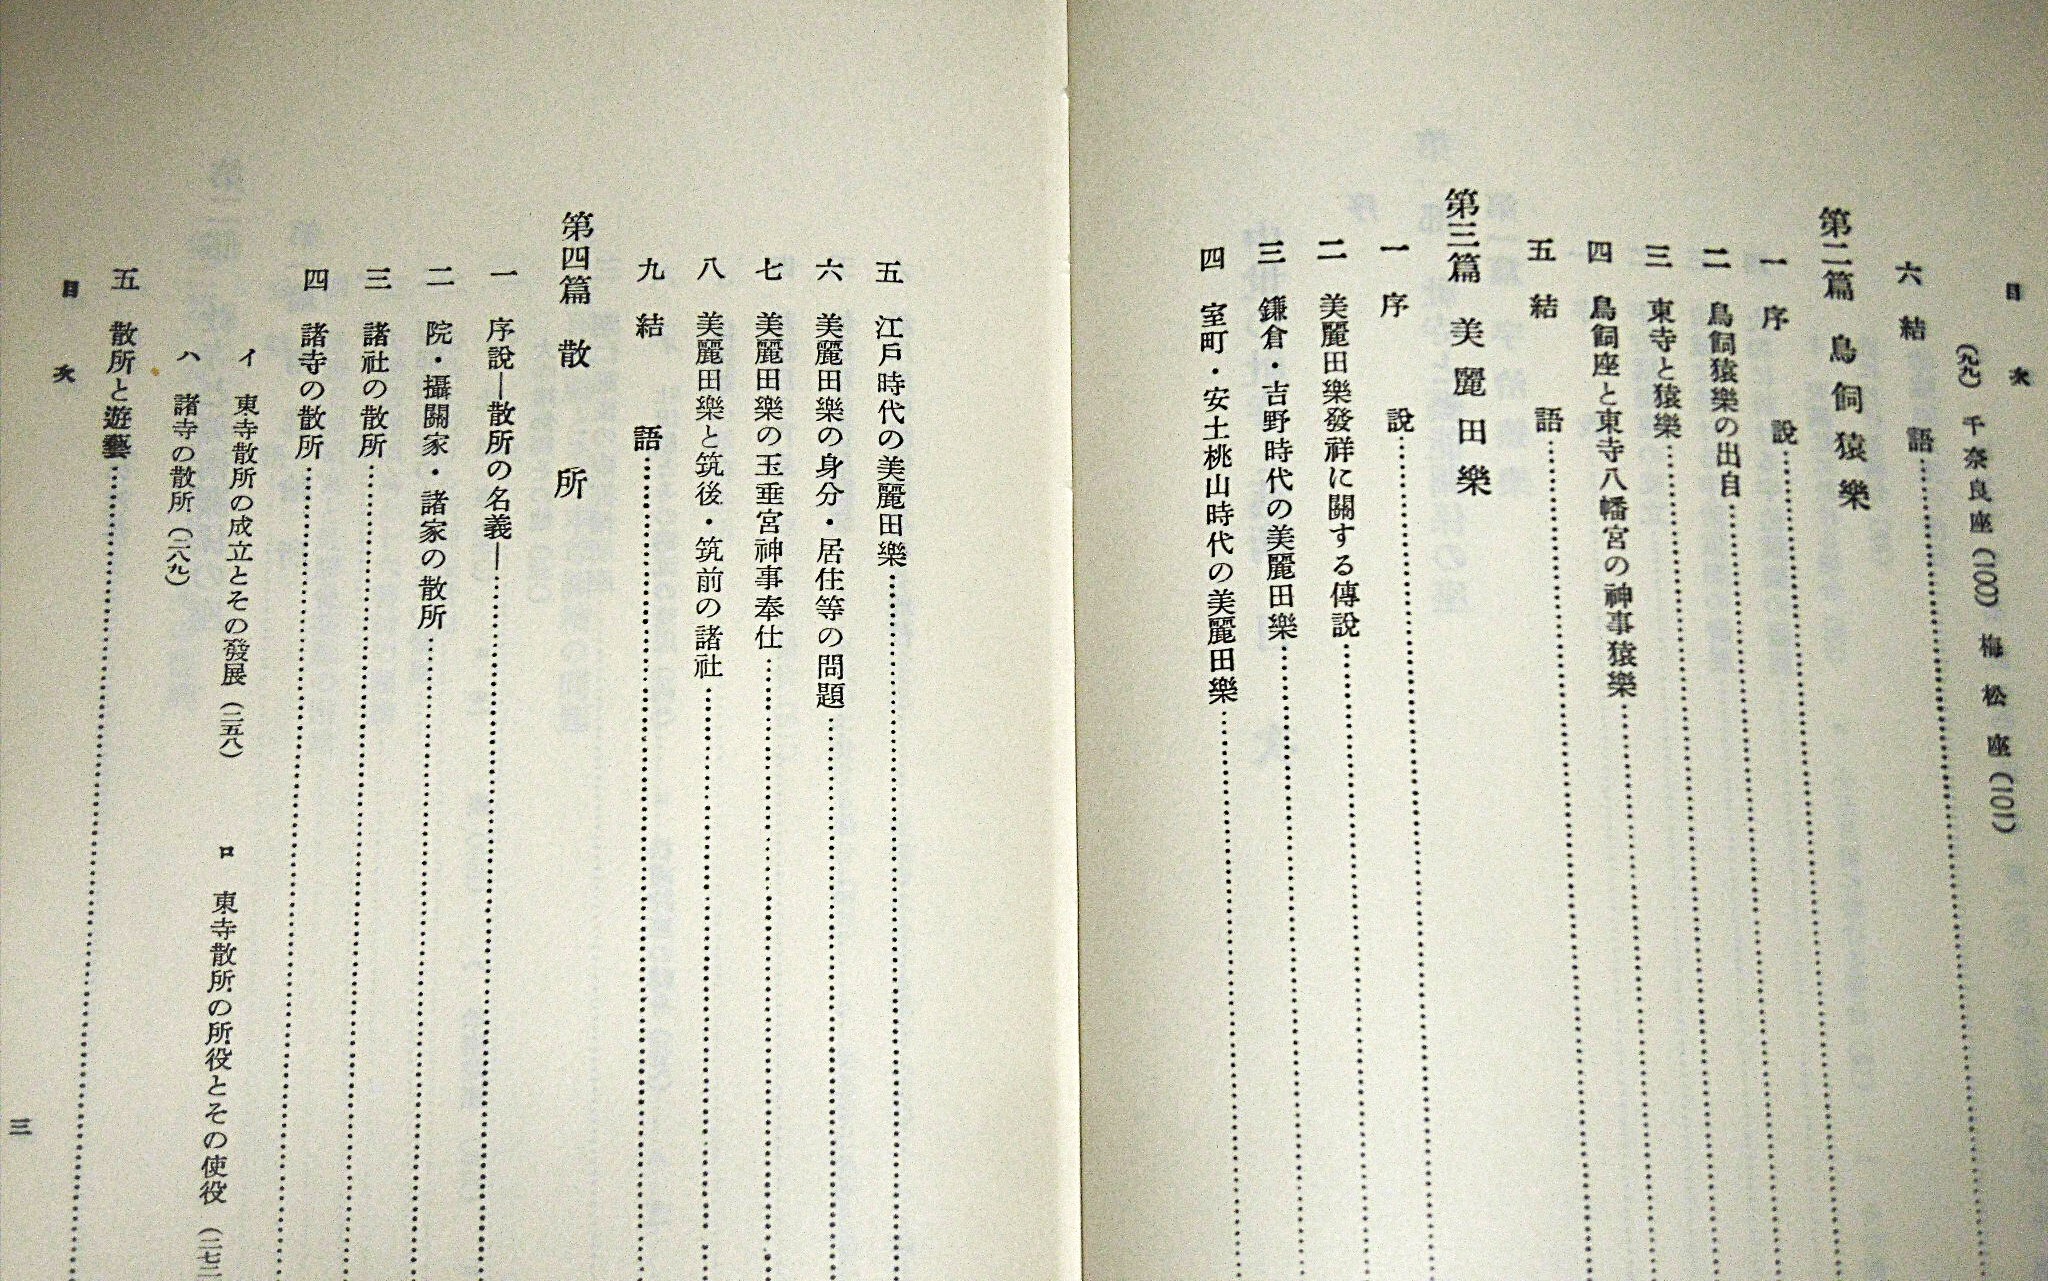 目次
（九九）　千奈良座（一〇〇）　梅松座（一〇一）
六　結　語
第二篇　鳥飼猿樂
一　序　說
二　鳥飼猿樂の出自
三　東寺と猿樂
四　鳥飼座と東寺八幡宮の神事猿樂
五　結　語
第三篇　美麗田樂
一　序　說
二　美麗田樂發祥に關する傳說
三　鎌倉・吉野時代の美麗田樂
四　室町・安土桃山時代の美麗田樂
五　江戶時代の美麗田樂
六　美麗田樂の身分・居住等の問題
七　美麗田樂の玉垂宮神事奉仕
八　美麗田樂と筑後・筑前の諸社
九　結　語
第四篇　散　所
一　序說—散所の名義—
二　院・攝關家・諸家の散所
三　諸社の散所
四　諸寺の散所
イ　東寺散所の成立とその發展（二五八）　ロ　東寺散所の所役とその使役（二七二
ハ　諸寺の散所（二八九）
五　散所と遊藝
目次
三